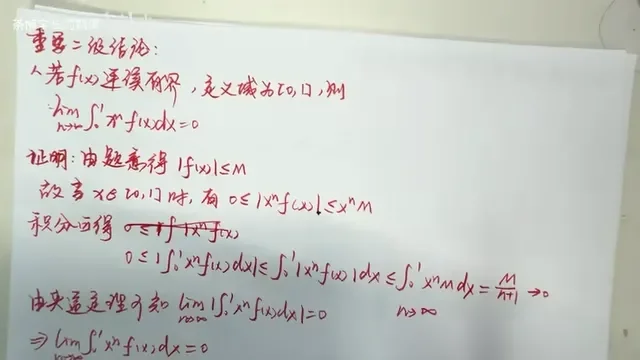 重要二级结论:
1.若f(x)连续有界,定义域为[0,1],则
lim n→∞ ∫₀¹ xⁿf(x)dx=0
证明:由题意得 |f(x)|≤M
故当 x∈[0,1]时,有 0≤|xⁿf(x)|≤xⁿM
积分可得
0≤|∫₀¹xⁿf(x)dx|≤∫₀¹|xⁿf(x)|dx≤∫₀¹xⁿMdx=M/(n+1)→0
n→∞
由夹逼定理可知 lim n→∞ |∫₀¹xⁿf(x)dx|=0
⇒ lim n→∞ ∫₀¹xⁿf(x)dx=0